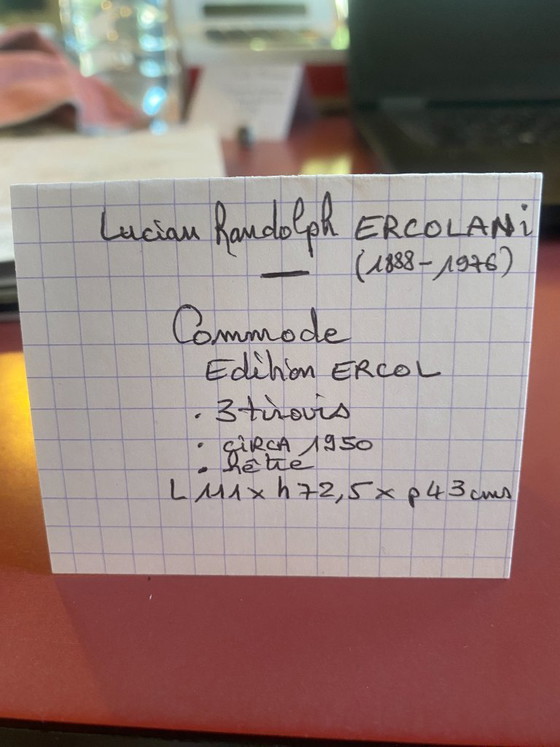 Lucian Randolph ERCOLANi
(1888-1976)
Commode
Edition ERCOL
. 3 tiroirs
. CiRCA 1950
. hêtre
L 111 x h 72,5 x p 43 cms